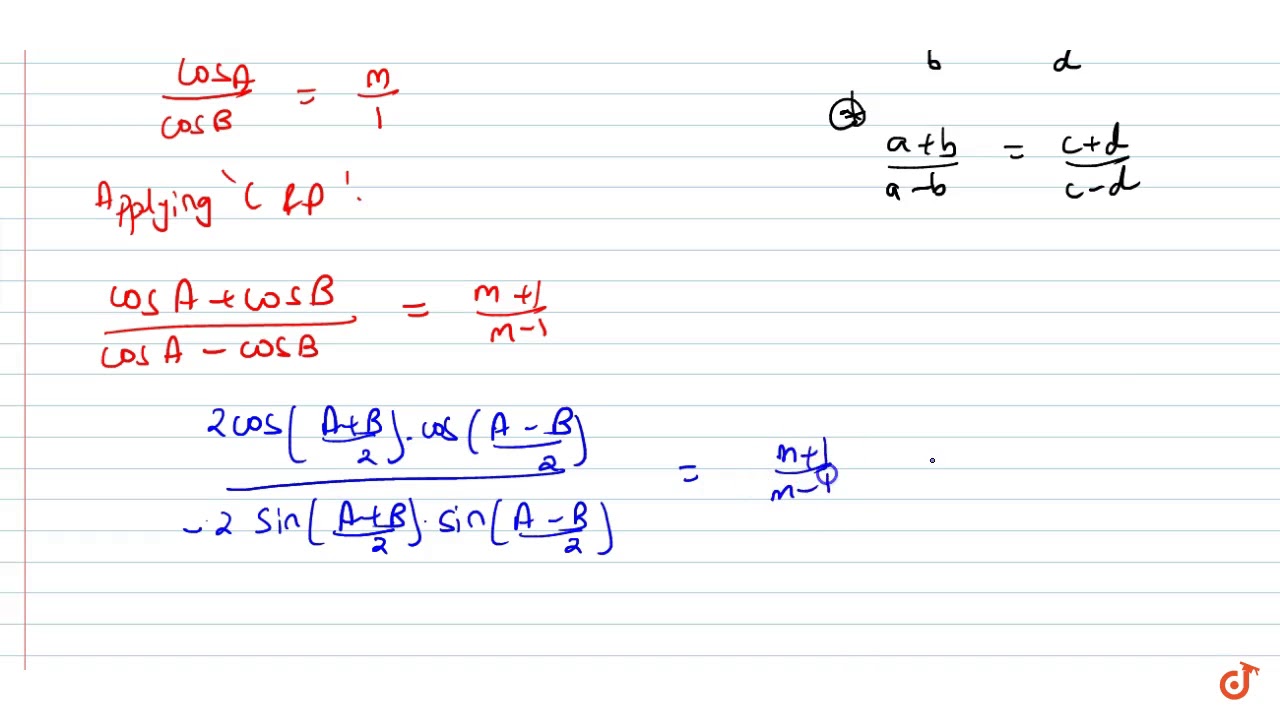 cosA/cosB = m/1
b d
⊛ (a+b)/(a-b) = (c+d)/(c-d)
Applying 'C & D'.
(cosA + cosB)/(cosA - cosB) = (m+1)/(m-1)
(2cos((A+B)/2).cos((A-B)/2))/(-2 sin((A+B)/2).sin((A-B)/2)) = (m+1)/(m-1)